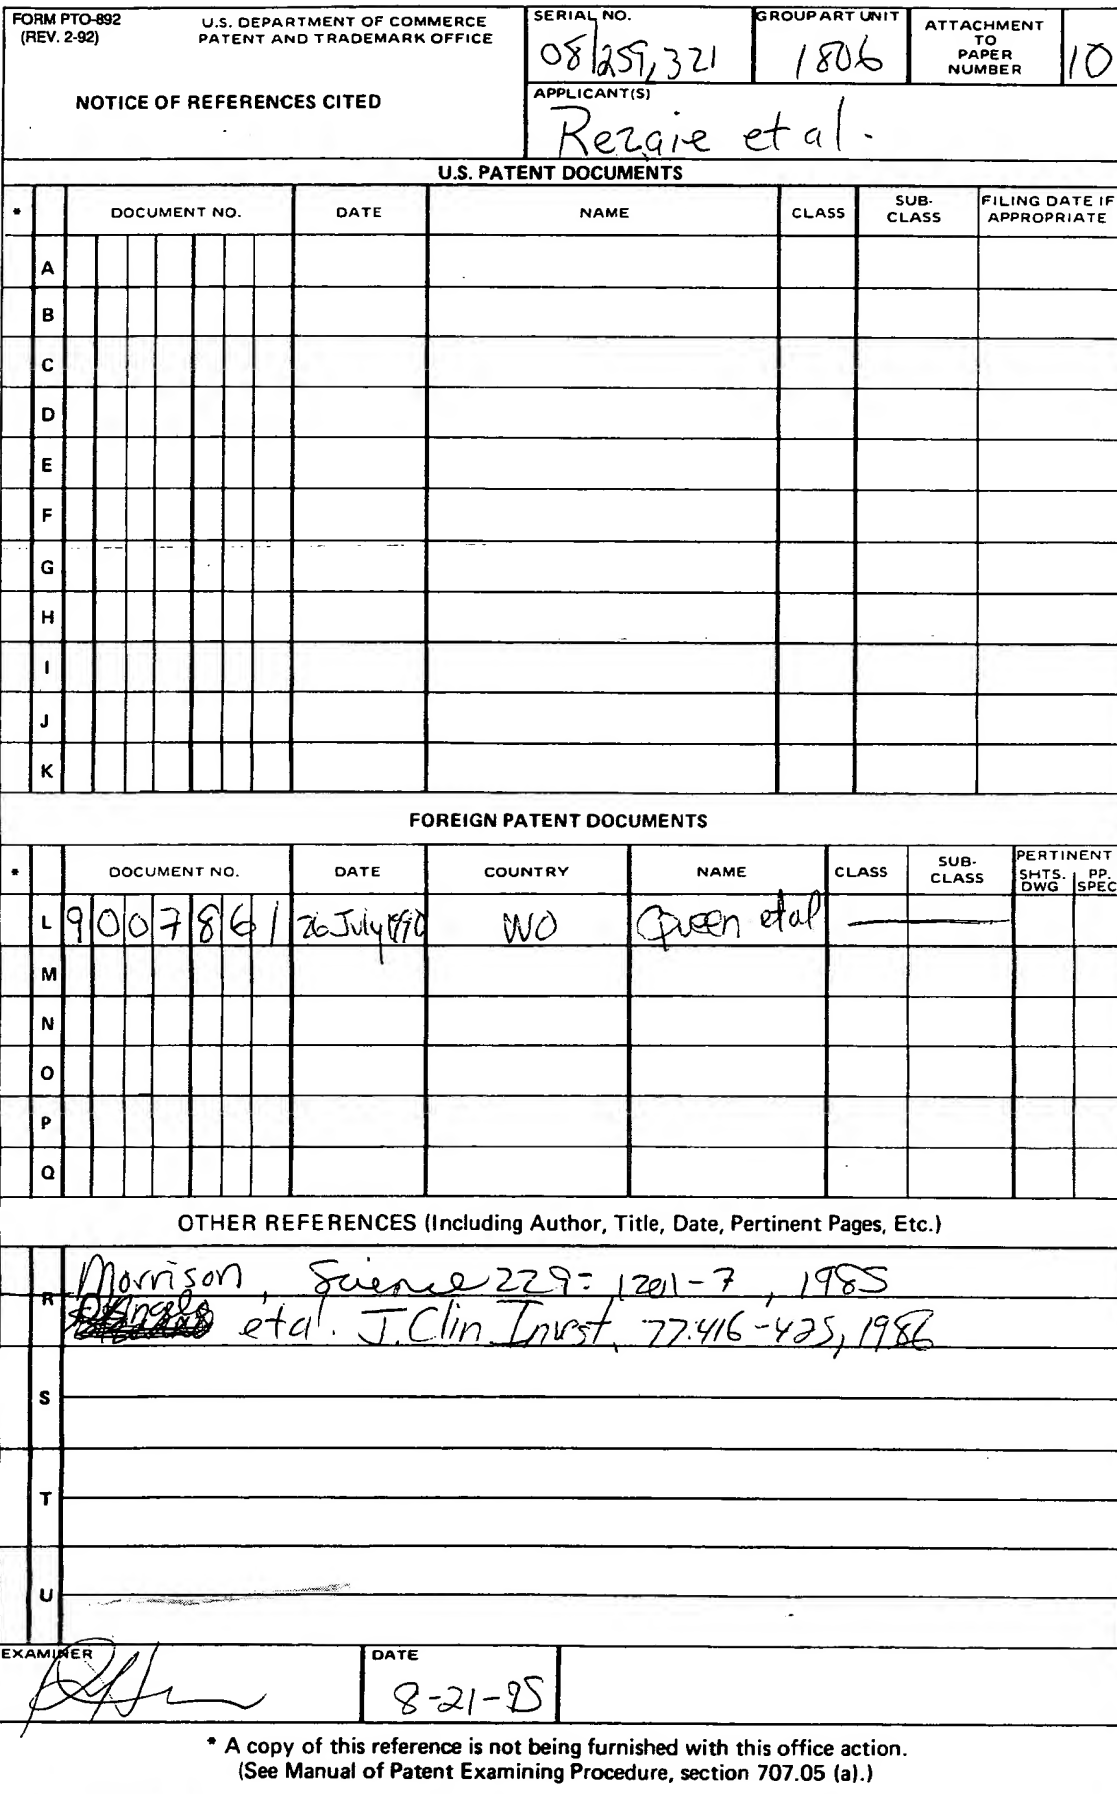 FORM PTO-892
(REV. 2-92)
U.S. DEPARTMENT OF COMMERCE
PATENT AND TRADEMARK OFFICE
NOTICE OF REFERENCES CITED
SERIAL NO.
08/259,321
GROUP ART UNIT
1806
ATTACHMENT
TO
PAPER
NUMBER
10
APPLICANT(S)
Rezaie et al.
U.S. PATENT DOCUMENTS
* DOCUMENT NO. DATE NAME CLASS SUB-CLASS FILING DATE IF APPROPRIATE
A
B
C
D
E
F
G
H
I
J
K
FOREIGN PATENT DOCUMENTS
* DOCUMENT NO. DATE COUNTRY NAME CLASS SUB-CLASS PERTINENT SHTS. DWG PP. SPEC
L 9007861 26 July 1990 WO Queen et al
M
N
O
P
Q
OTHER REFERENCES (Including Author, Title, Date, Pertinent Pages, Etc.)
Morrison, Science 229: 1201-7, 1985
R D'Angelo et al. J. Clin Invest. 77:416-425, 1986
S
T
U
EXAMINER
DATE
8-21-95
* A copy of this reference is not being furnished with this office action.
(See Manual of Patent Examining Procedure, section 707.05 (a).)